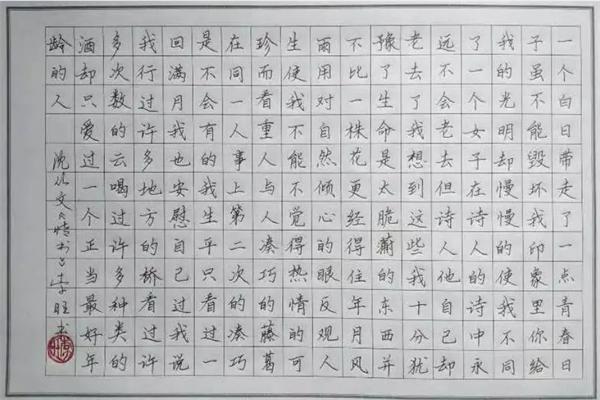 一个白日带走了一点青春日
子虽不能毁坏我印象里你给
我的光明却慢慢的使我不同
了一个女子在诗人的诗中永
远不会老去但诗人他自己却
老去了我想到这些我十分犹
豫了生命是太脆薄的东西并
不比一株花更经得住年月风
雨用对自然倾心的眼反观人
生使我不能不觉得热情的可
珍而看重人与人凑巧的藤葛
在同一人事上第二次的凑巧
是不会有的我生平只看过一
回满月我也安慰自己过我说
我行过许多地方的桥看过许
多次数的云喝过许多种类的
酒却只爱过一个正当最好年
龄的人
沈从文 情书 李旺书